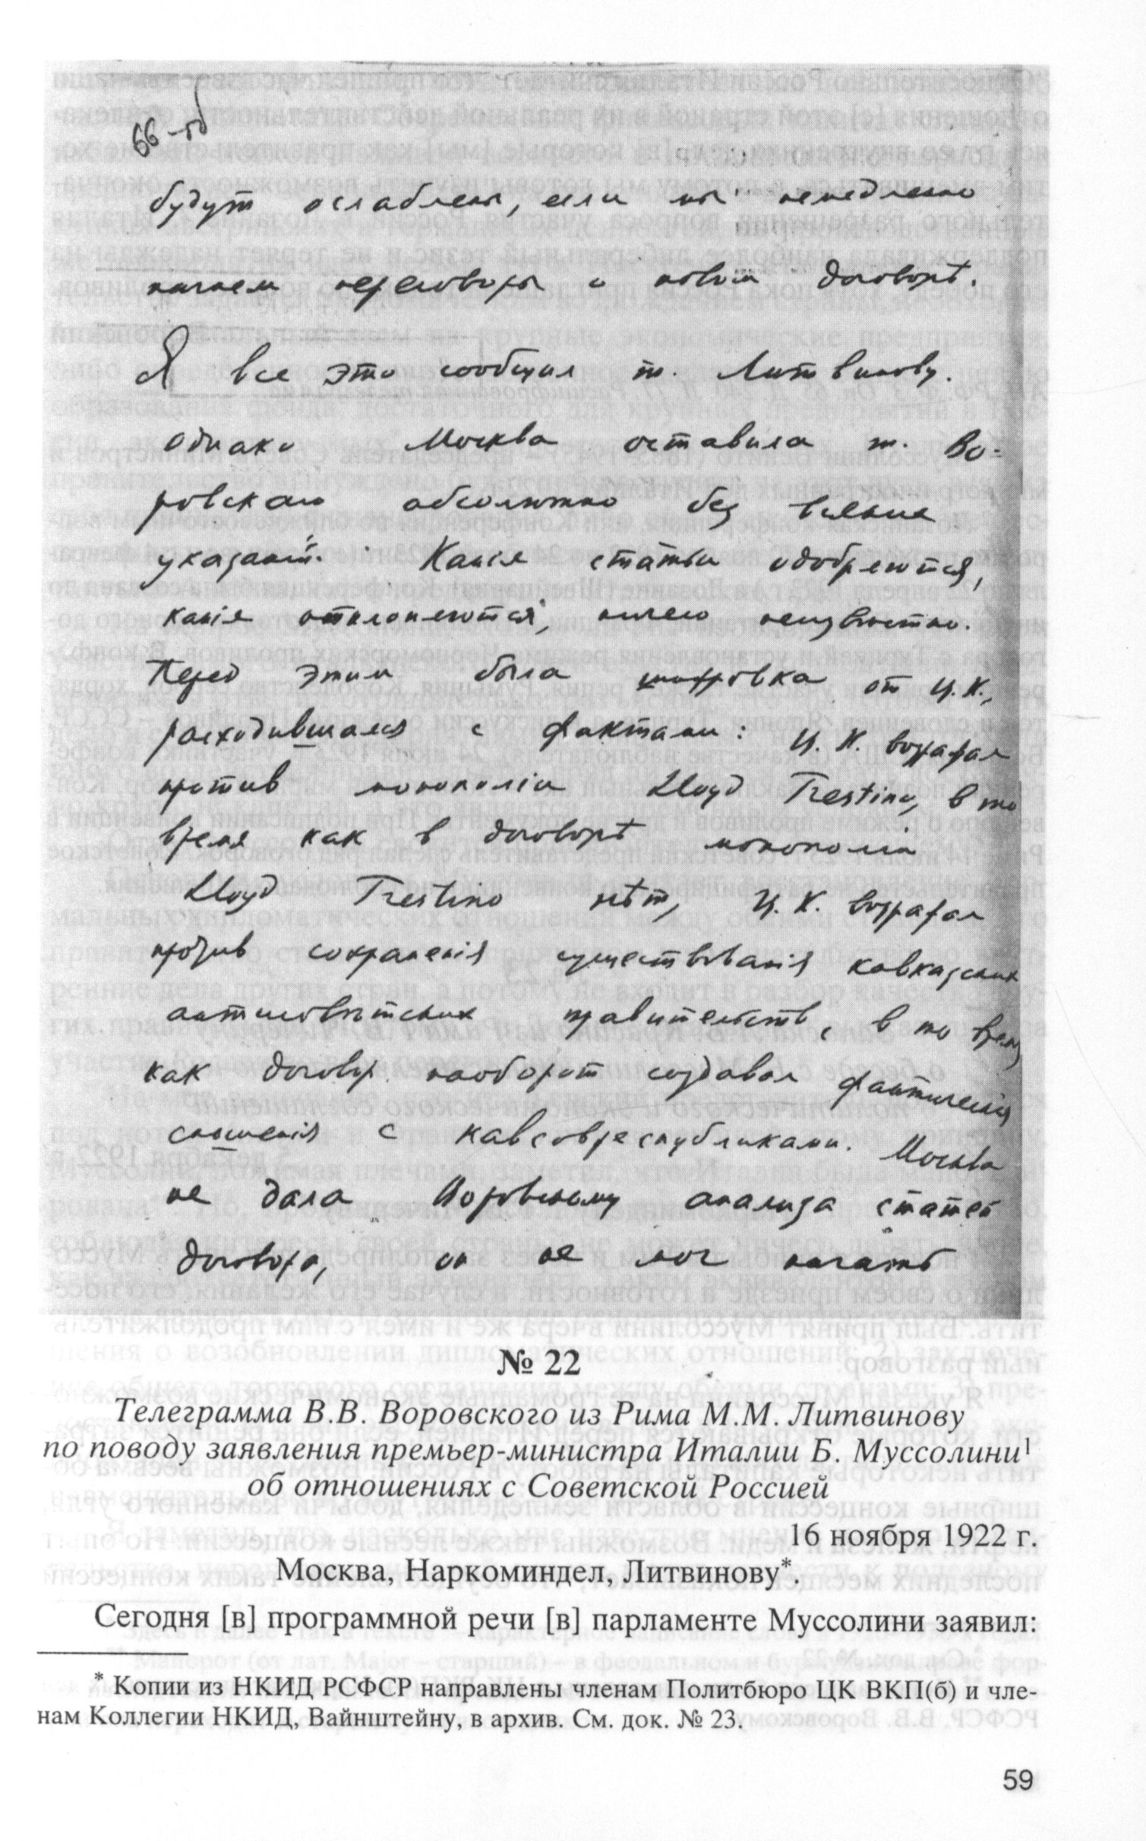 66-об
будут ослаблены, если мы немедленно
начнем переговоры о новом договорѣ.
Я все это сообщил т. Литвинову.
Однако Москва оставила т. Во-
ровскаго абсолютно без всяких
указаний. Какія статьи одобряются,
какія отклоняются, ничего неизвѣстно.
Перед этим была шифровка от Ц.К.,
расходившаяся с фактами: Ц.К. возражал
против монополіи Lloyd Trestino, в то
время как в договорѣ монополіи
Lloyd Trestino нѣт, Ц.К. возражал
против сохраненія существованія кавказских
антисовѣтских правительств, в то время
как договор наоборот создавал фактическія
сношенія с кавсовреспубликами. Москва
не дала Воровскому анализа статей
договора, он не мог начать
№ 22
Телеграмма В.В. Воровского из Рима М.М. Литвинову
по поводу заявления премьер-министра Италии Б. Муссолини¹
об отношениях с Советской Россией
16 ноября 1922 г.
Москва, Наркоминдел, Литвинову*.
Сегодня [в] программной речи [в] парламенте Муссолини заявил:
* Копии из НКИД РСФСР направлены членам Политбюро ЦК ВКП(б) и чле-
нам Коллегии НКИД, Вайнштейну, в архив. См. док. № 23.
59